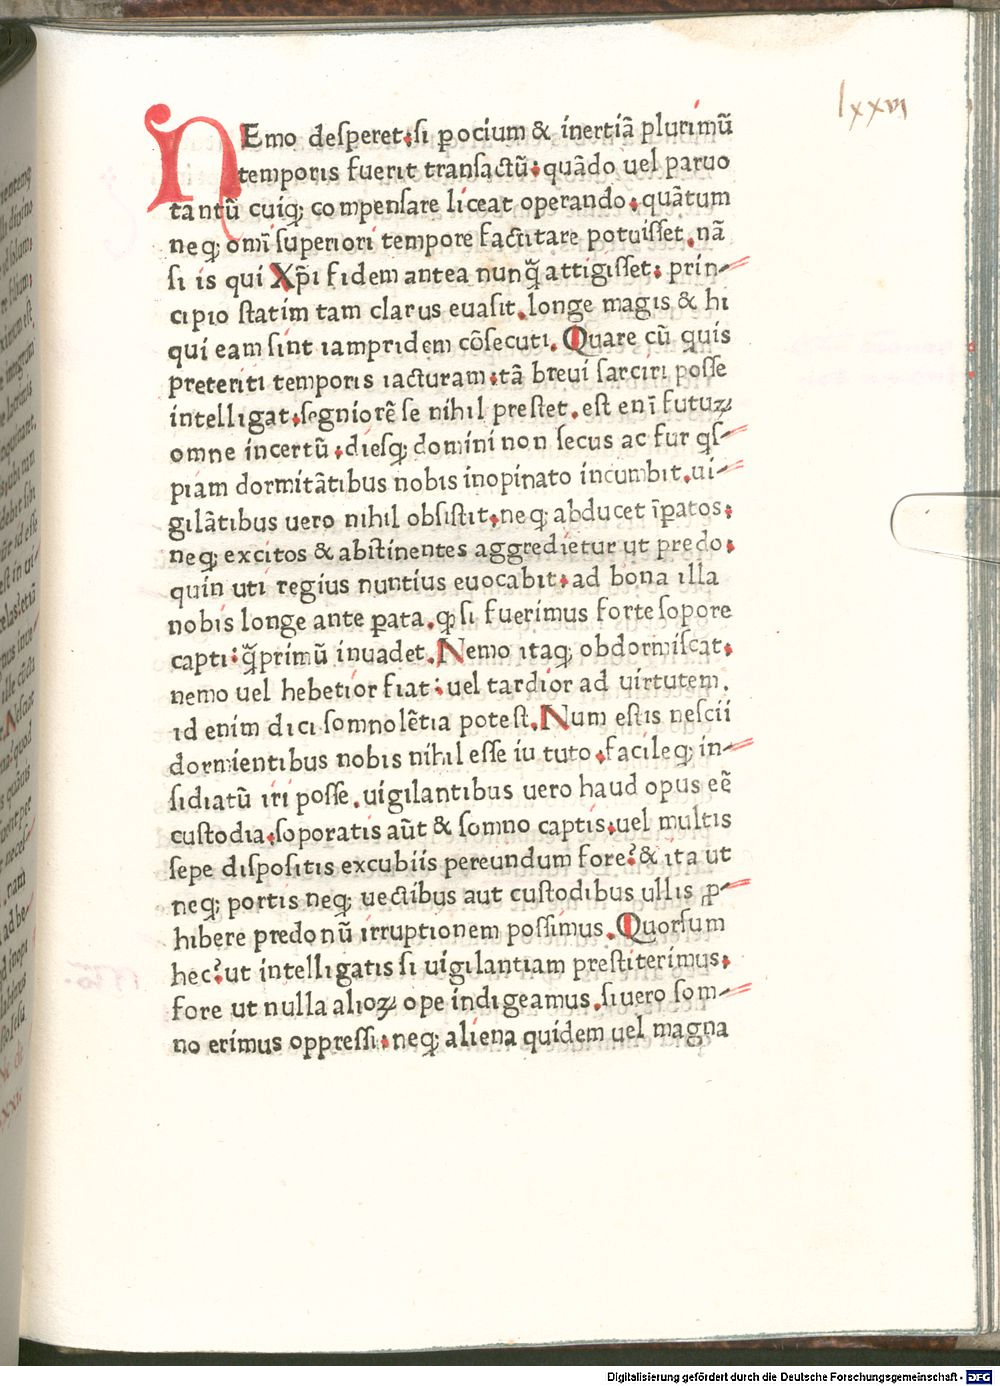 lxxvi
NEmo desperet: si ꝑ ocium & inertiã plurimũ
temporis fuerit transactũ: quãdo uel paruo
tantũ cuiqꝫ compensare liceat operando: quãtum
neqꝫ omĩ superiori tempore factitare potuisset. nã
si is qui Xp̃i fidem antea nunq̃ attigisset: prin-
cipio statim tam clarus euasit. longe magis & hi
qui eam sint iampridem cõsecuti. Quare cũ quis
preteriti temporis iacturam: tã breui sarciri posse
intelligat: segniorẽ se nihil prestet. est enĩ futuꝝ
omne incertũ: diesqꝫ domini non secus ac fur qs-
piam dormitãtibus nobis inopinato incumbit. ui-
gilãtibus uero nihil obsistit: neqꝫ abducet ĩpatos:
neqꝫ excitos & abstinentes aggredietur ut predo:
quin uti regius nuntius euocabit: ad bona illa
nobis longe ante ꝑata. ꝙ si fuerimus forte sopore
capti: q̃primũ inuadet. Nemo itaqꝫ obdormiscat:
nemo uel hebetior fiat: uel tardior ad uirtutem.
id enim dici somnolẽtia potest. Num estis nescii
dormientibus nobis nihil esse iu tuto: facileqꝫ in-
sidiatũ iri posse. uigilantibus uero haud opus eẽ
custodia: soporatis aũt & somno captis: uel multis
sepe dispositis excubiis pereundum fore? & ita ut
neqꝫ portis neqꝫ uectibus aut custodibus ullis ꝓ-
hibere predonũ irruptionem possimus. Quorsum
hec? ut intelligatis si uigilantiam prestiterimus:
fore ut nulla alioꝝ ope indigeamus. si uero som-
no erimus oppressi: neqꝫ aliena quidem uel magna
Digitalisierung gefördert durch die Deutsche Forschungsgemeinschaft - DFG